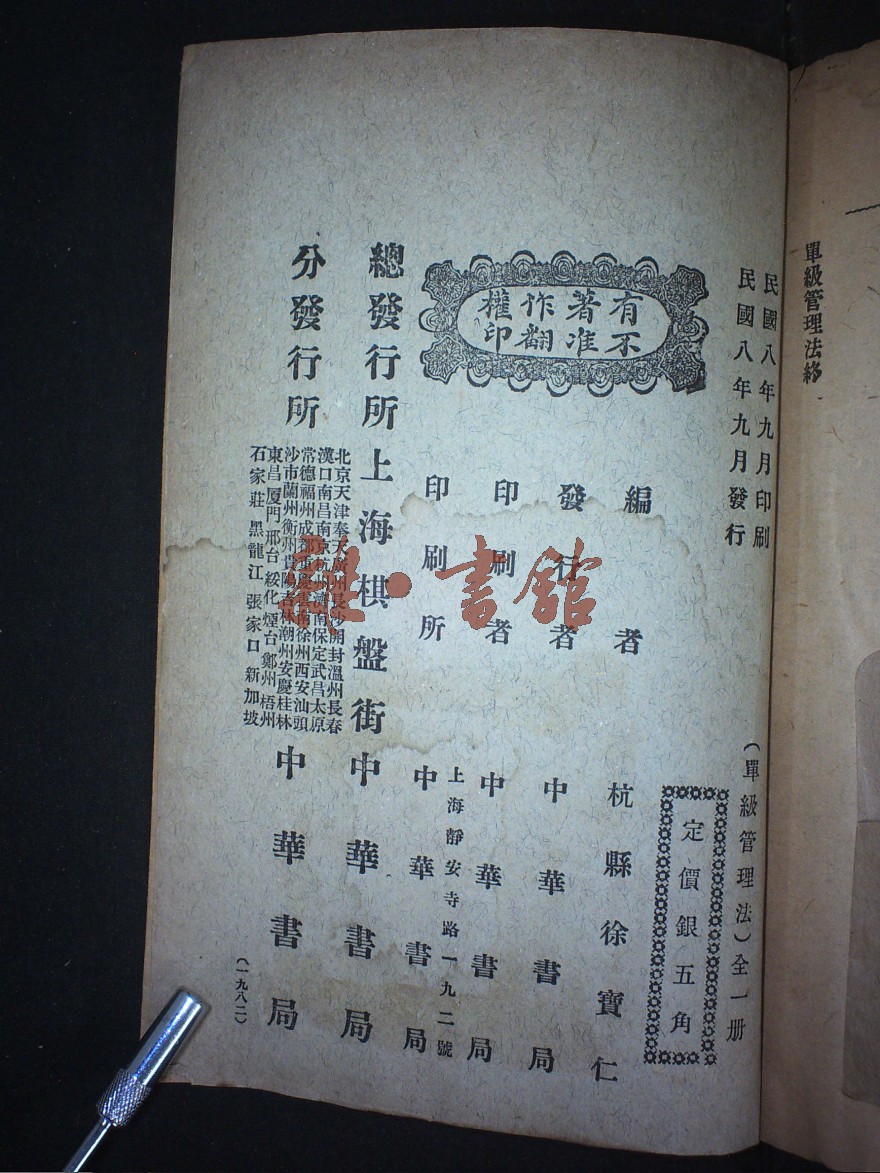 單級管理法終
民國八年九月印刷
民國八年九月發行
(單級管理法)全一册
定價銀五角
有著作權
不准翻印
編者 杭縣徐寶仁
發行者 中華書局
印刷者 中華書局
上海靜安寺路一九二號
印刷所 中華書局
總發行所 上海棋盤街 中華書局
分發行所
北京天津奉天廣州長沙開封溫州長春
漢口南昌南京杭州濟南保定武昌太原
常德福州成都重慶雲南徐州西安汕頭
沙市蘭州衡州貴陽吉林潮州安慶桂林
東昌厦門邢台綏化煙台鄭州梧州
石家莊黑龍江張家口新加坡
中華書局
(一九八二)
書館